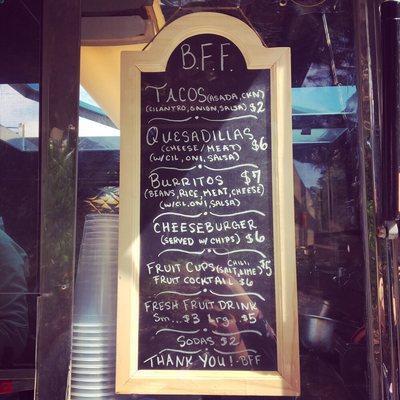 B.F.F.
TACOS (ASADA, CKN)
(CILANTRO, ONION, SALSA) $2
QUESADILLAS $6
(CHEESE/MEAT)
(W/CIL, ONI, SALSA)
BURRITOS $7
(BEANS, RICE, MEAT, CHEESE)
(W/CIL. ONI, SALSA)
CHEESEBURGER
(SERVED W/CHIPS) $6
FRUIT CUPS (CHILI, SALT, LIME) $5
FRUIT COCKTAIL $6
FRESH FRUIT DRINK
SM...$3 LRG...$5
SODAS $2
THANK YOU! -BFF